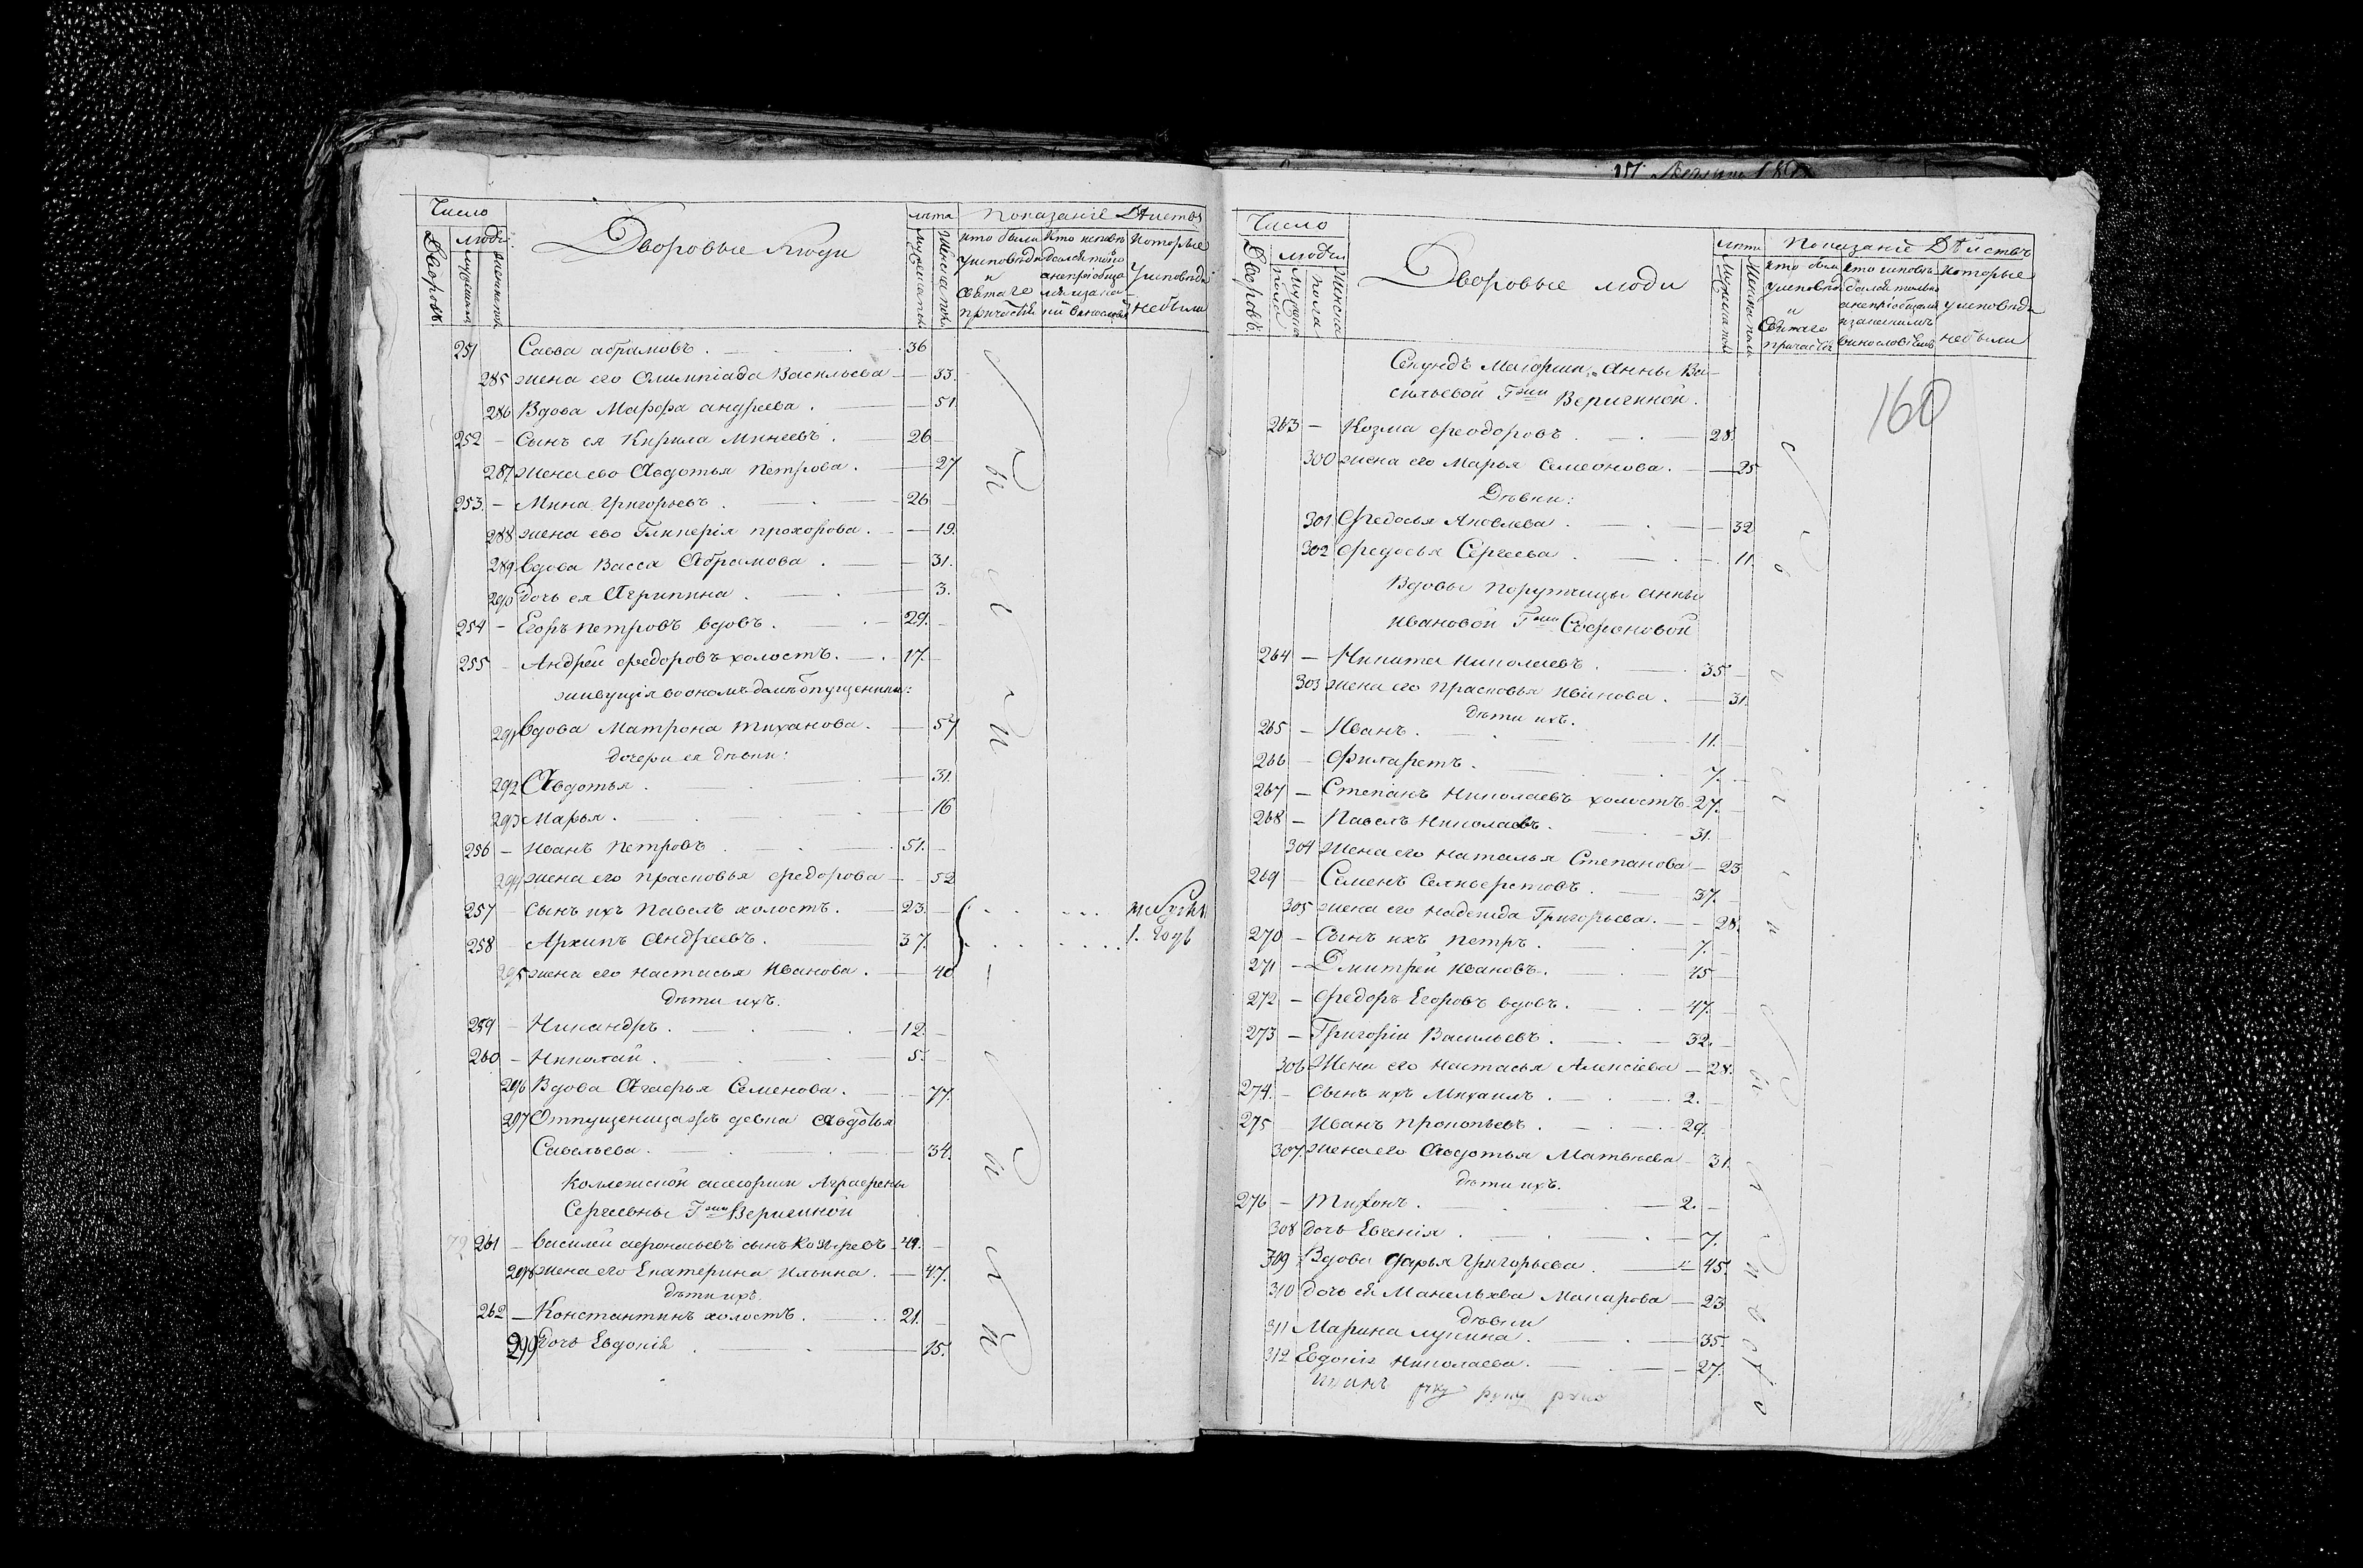 Число
Дворовъ
людей
Дворовые люди
лѣта
Показаніе Дѣйствъ
кто были
у исповѣди
и
святаго
причастія
которые
у исповѣди
не были
251 Савва абрамовъ . — 36
285 жена его Олимпіада Васильева — 33.
286 Вдова Марфа андреева . — 51.
252 — Сынъ ея Кирила Минеевъ . 26
287 жена ево Авдотья петрова . — 27
253. — Мина григорьевъ . — 26
288 жена ево Гликерія прохорова . — 19.
289 вдова Васса Абрамова . — 31.
290 дочь ея Агрипина . — 3.
254 — Егоръ петровъ вдовъ . — 29.
255 — Андрей федоровъ холостъ . — 17.
живущія во ономъ домѣ отпущенныи:
291 вдова Матрона тиханова . — 57
дочери ея дѣвки:
292 Авдотья . — 31.
293 Марья . — 16
256 — иванъ петровъ . — 51.
294 жена его прасковья федорова — 52
257 — сынъ ихъ павелъ холостъ . — 23.
258 — Архипъ андреевъ . 37.
1. годъ
295 жена его настасья иванова . — 40
дѣти ихъ.
259 — Никандръ . — 12.
260 — Николай . 5.
296 Вдова Агафья Семенова . — 77.
297 Отпущенница девка авдотья
Савельева . — 34.
Коллежской асесорши Аграфены
Сергеевны Гжи Веригиной
261 — василей афонасьевъ сынъ — 49.
298 жена его Екатерина ильина . — 47.
дѣти ихъ.
262 — Константинъ холостъ . — 21.
299 дочь Евдокія . — 15.
Число
Дворовъ
людей
Дворовые люди
лѣта
Показаніе Дѣйствъ
кто были
у исповѣди
и
святаго
причастія
которые
у исповѣди
не были
160
Секундъ Маіорши анны Ва-
сильевой Гжи Веригиной .
263 — Козма феодоровъ . — 28.
300 жена его Марья семеонова . — 25
Дѣвки:
301. Федосья Яковлева . — 32
302 федосья Сергеева . — 11.
Вдовы порутчицы анны
ивановой Гжи Софоновой
264 — Никита николаевъ . — 35
303 жена его прасковья иванова . — 31.
дѣти ихъ.
265 — Иванъ . — 11.
266 — Филаретъ . — 7.
267 — Степанъ николаевъ холостъ 27.
268 — Павелъ николаевъ . — 31.
304 жена его наталья Степанова — 23
269 — Семенъ селиверстовъ . — 37.
305 жена его надежда Григорьева . — 28.
270 — Сынъ ихъ петръ . — 7.
271 — Дмитрей ивановъ . — 15
272 — федоръ Егоровъ вдовъ . — 47.
273 — Григорій Васильевъ . — 32.
306 Жена его настасья Алексіева — 28.
274. — сынъ ихъ Михаилъ . — 2.
275 иванъ прокопьевъ . — 29.
307 жена его авдотья Матвѣева — 31.
дѣти ихъ.
276 — тихонъ . — 2.
308 дочь Евгенія . — 7.
309 Вдова дарья григорьева . — 45.
310 дочь ея Макарова — 23
дѣвки
311 Марина лукина . — 35.
312 Евдокія николаева . — 27.